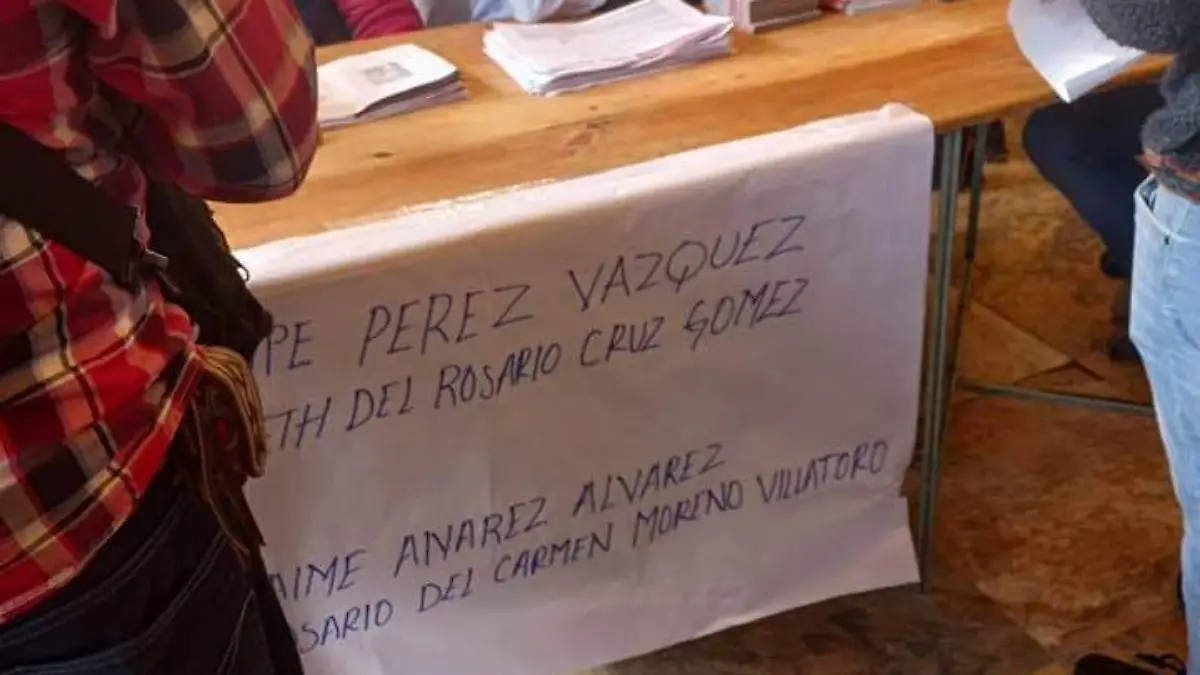 PE PEREZ VAZQUEZ
ETH DEL ROSARIO CRUZ GOMEZ
AIME ANAREZ ALVAREZ
SARIO DEL CARMEN MORENO VILLATORO